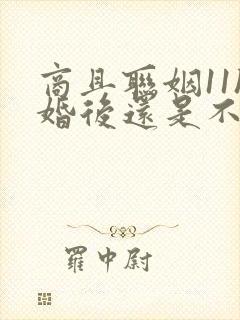 商且聯姻11
婚後還是不
羅中尉